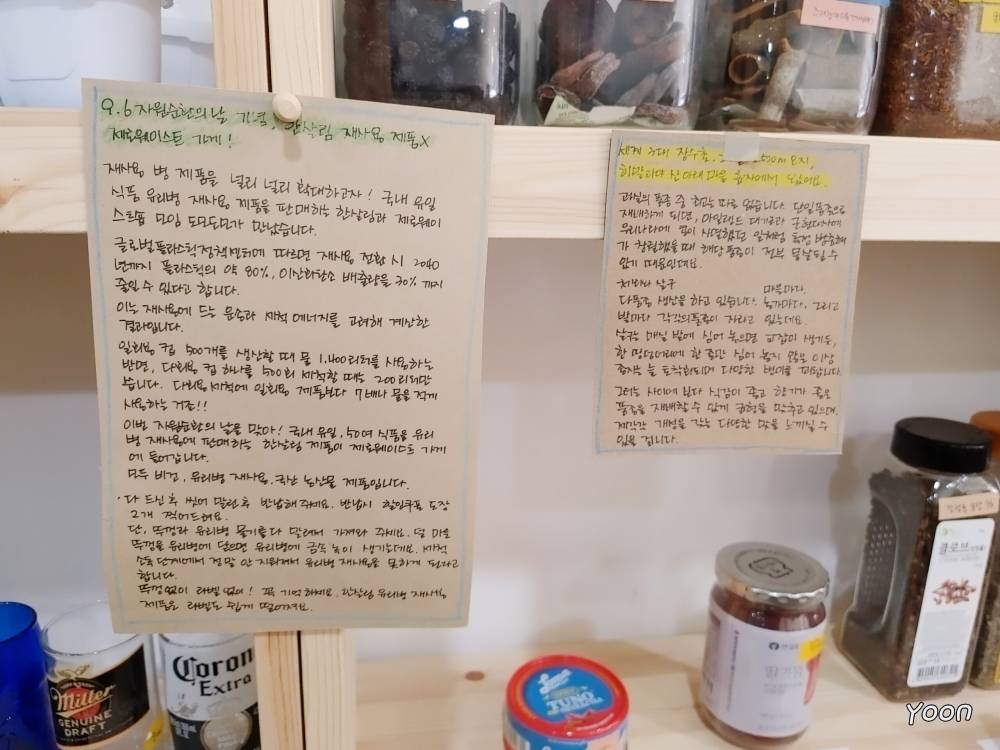 9.6 자원순환의 날 기념, 한살림 재사용 제품X
제로웨이스트 가게!
재사용 병 제품을 널리 널리 확대하고자! 국내 유일
식품 유리병 재사용 제품을 판매하는 한살림과 제로웨이
스트숍 모임 도모도모가 만났습니다.
글로벌플라스틱정책센터에 따르면 재사용 전환 시 2040
년까지 플라스틱의 약 80%, 이산화탄소 배출량을 30% 까지
줄일 수 있다고 합니다.
이는 재사용에 드는 운송과 세척 에너지를 고려해 계산한
결과입니다.
일회용 컵 500개를 생산할 때 물 1,400리터를 사용하는
반면, 다회용 컵 하나를 500회 세척할 때는 200리터만
씁니다. 다회용 세척에 일회용 제품보다 7배나 물을 적게
사용하는 거죠!!
이번 자원순환의 날을 맞아! 국내 유일, 50여 식품을 유리
병 재사용에 판매하는 한살림 제품이 제로웨이스트 가게
에 들어갑니다.
모두 비건, 유리병 재사용, 국산 농산물 제품입니다.
· 다 드신 후 씻어 말린 후 반납해 주세요. 반납시 할인쿠폰 도장
2개 찍어드려요.
단, 뚜껑과 유리병 물기를 다 말려서 가져와 주세요. 덜 마른
뚜껑을 유리병에 닫으면 유리병에 금속 녹이 생기는데요. 세척
소독 단계에서 정말 안 지워져서 유리병 재사용을 못하게 된다고
합니다.
뚜껑없이 라벨 없이! 꼭 기억하세요. 한살림 유리병 재사용
제품은 라벨도 쉽게 떨어져요.
세계 3대 장수촌, 500m 오지,
히말라야 산 아래 마을 훈자에서 왔어요.
재배하게 되면, 아일랜드 대기근과
우리나라에
가 창궐했을 때 해당 품종이 전부 몰살될 수
있기 때문인데요.
마을마다,
다품종 생산을 하고 있습니다. 농가마다, 그리고
밭마다 각각의 품종이 자라고 있는데요.
살구 매닝 밭에 심어 놓으면 교잡이 생기듯,
한 덩어리에 한 종만 심어 놓지 않은 이상
종자는 늘 토착화되며 다양한 변이를 꾀합니다.
그러는 사이에 보다 식감이 좋고 향기가 좋은
품종을 재배할 수 있게 균형을 맞추고 있으며,
제각각 개성을 갖는 다양한 맛을 느끼실 수
있을 겁니다.
Miller
GENUINE
DRAFT
Corona
Extra
TUNO
딸기잼
클로브
Yoon